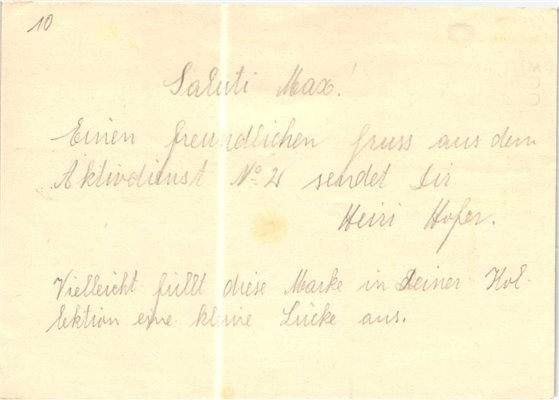 10
Saluti Max!
Einen freundlichen Gruss aus dem
Aktivdienst No 2 sendet Dir
Heiri Hofer.
Vielleicht füllt diese Marke in Deiner Kol-
lektion eine kleine Lücke aus.